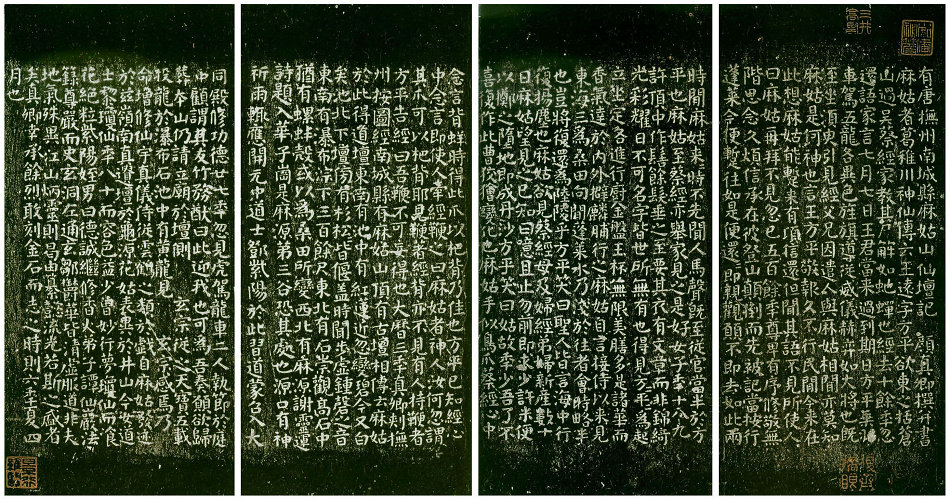 有唐撫州南城縣麻姑山仙壇記 顏真卿撰并書
麻姑者葛稚川神仙傳云王遠字方平欲東之括蒼
山過吳蔡經家教其尸解如蛇蟬也經去十餘年忽
還語家言七月七日王君當來過到期日方平乘羽
車駕五龍各異色旌旗導從威儀赫弈如大將也既
至坐須臾引見經父兄因遣人與麻姑相聞亦莫知
麻姑是何神也言王方平敬報久不行民間今來在
此想麻姑能暫來有頃信還但聞其語不見所使人
曰麻姑再拜不見忽已五百餘年尊卑有序修敬無
階思念久煩信承在彼登山顛倒而先被記當按行
蓬萊今便暫往如是便還還即親覲願不即去如此兩
時間麻姑來來時不先聞人馬聲既至從官當半於方
平也麻姑至蔡經亦舉家見之是好女子年十八九
許頂中作髻餘髮垂之至要其衣有文章而非錦綺
光彩耀日不可名字皆世所無有也得見方平為起
立坐定各進行廚金盤玉杯無限美膳多是諸華而
香氣達於內外擗麟脯行之麻姑自言接待以來見
東海三為桑田向間蓬萊水乃淺於往者會時略半
也豈將復還為陸陵乎方平笑曰聖人皆言海中行
復揚塵也麻姑欲見蔡經母及婦經弟婦新產數十
日麻姑望見之已知曰噫且止勿前即求少許米便
以擲之墮地即成丹沙方平笑曰姑故年少吾了不
喜復作此曹狡獪變化也麻姑手似鳥爪蔡經心中
念言背蛘時得此爪以杷背乃佳也方平已知經心
中念言即使人牽經鞭之曰麻姑者神人汝何忽謂
其爪可以杷背耶見鞭著經背亦不見有人持鞭者
方平告經曰吾鞭不可妄得也大曆三年真卿刺撫
州按圖經南城縣有麻姑山頂有古壇相傳云麻姑
於此得道壇東南有池中有紅蓮近忽變碧今又白
矣池北下壇傍有杉松皆偃蓋時聞步虛鐘磬之音
東南有瀑布淙下三百餘尺東北有石崇觀高石中
猶有螺蚌殼或以為桑田所變西北有麻源謝靈運
詩題入華子岡是麻源第三谷恐其處也源口有神
祈雨輒應開元中道士鄧紫陽於此習道蒙召入大
同殿修功德廿七年忽見虎駕龍車二人執節於庭
中顧謂其友竹務猷曰此迎我也可為吾奏願欲歸
葬本山仍請立廟於壇側 玄宗從之天寶五載
投龍於瀑布石池中有黃龍見 玄宗感焉乃
命增修仙宇真儀侍從雲鶴之類於戲自麻姑發迹
於茲嶺南真遺壇於龜源花姑表異於井山今女道
士黎瓊仙年八十而容色益少曾妙行夢瓊仙而飡
花絕粒紫陽姪男曰德誠繼修香火弟子譚仙巖法
籙尊嚴而史玄洞左通玄鄒鬱華皆清虛服道非夫
地氣殊異江山炳靈則曷由纂懿流光若斯之盛者
矣真卿幸承餘烈敢刻金石而志之時則六年夏四
月也